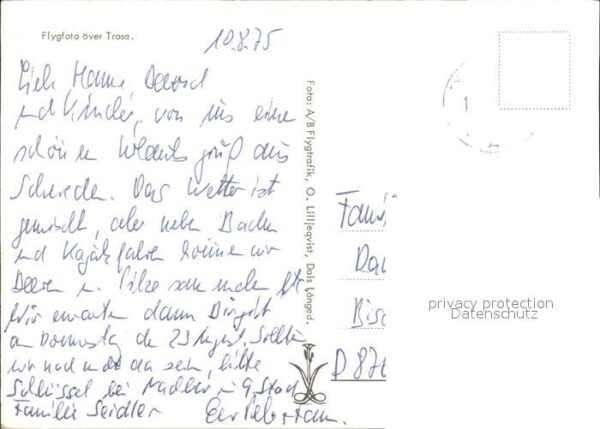 Flygfoto över Trosa.
10.8.75
Liebe Hanna,
und Kinder, von uns einen
schönen Urlaubsgruß aus
Schweden. Das Wetter ist
gemischt, aber neben Baden
und Kajakfahren können wir
Beeren u. Pilze sammeln
Wir erwarten dann Birgit
am Donnerstag de 23 August. Sollten
wir noch nicht da sein, bitte
Schlüssel bei 9. Stock
Familie Seidler
Foto: A/B Flygtrafik, O. Lilljeqvist, Dals Långed.
1
Fami
Bisc
D 876
privacy protection
Datenschutz